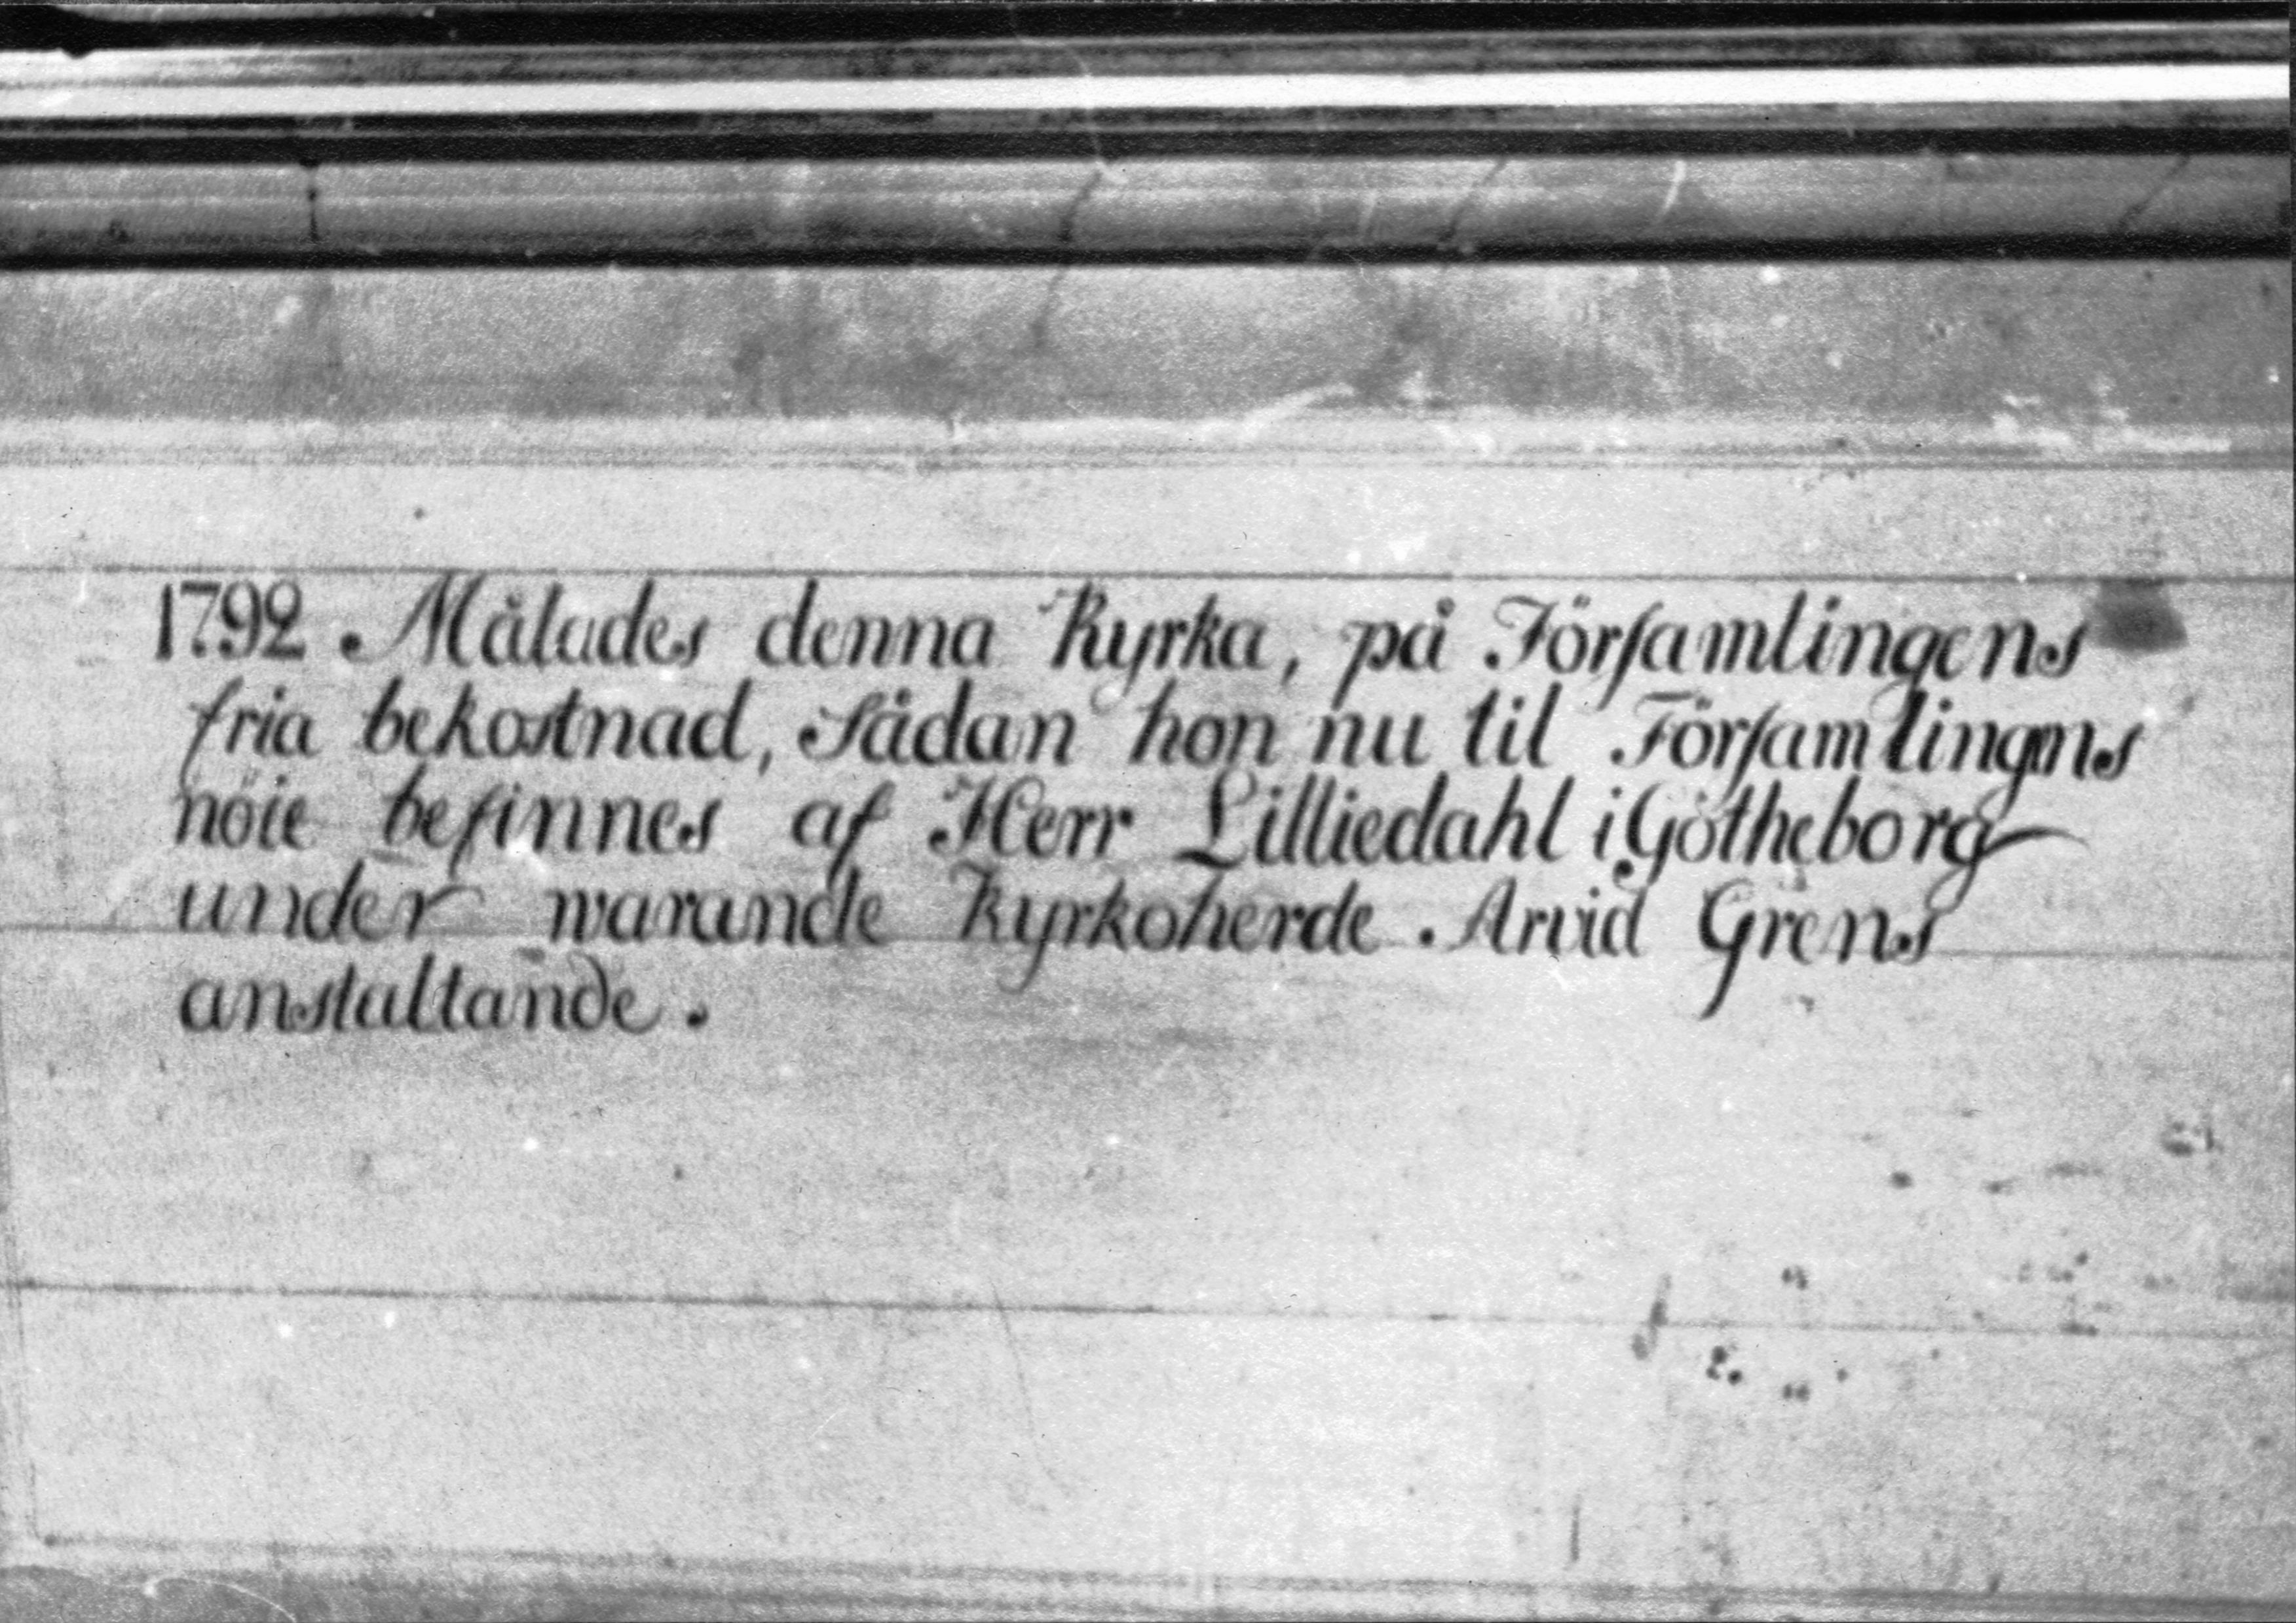 1792 Målades denna Kyrka, på Församlingens
fria bekostnad, Sådan hon nu til Församlingens
nöie befinnes af Herr Lilliedahl i Götheborg
under warande Kyrkoherde Arvid Grens
anstaltande.